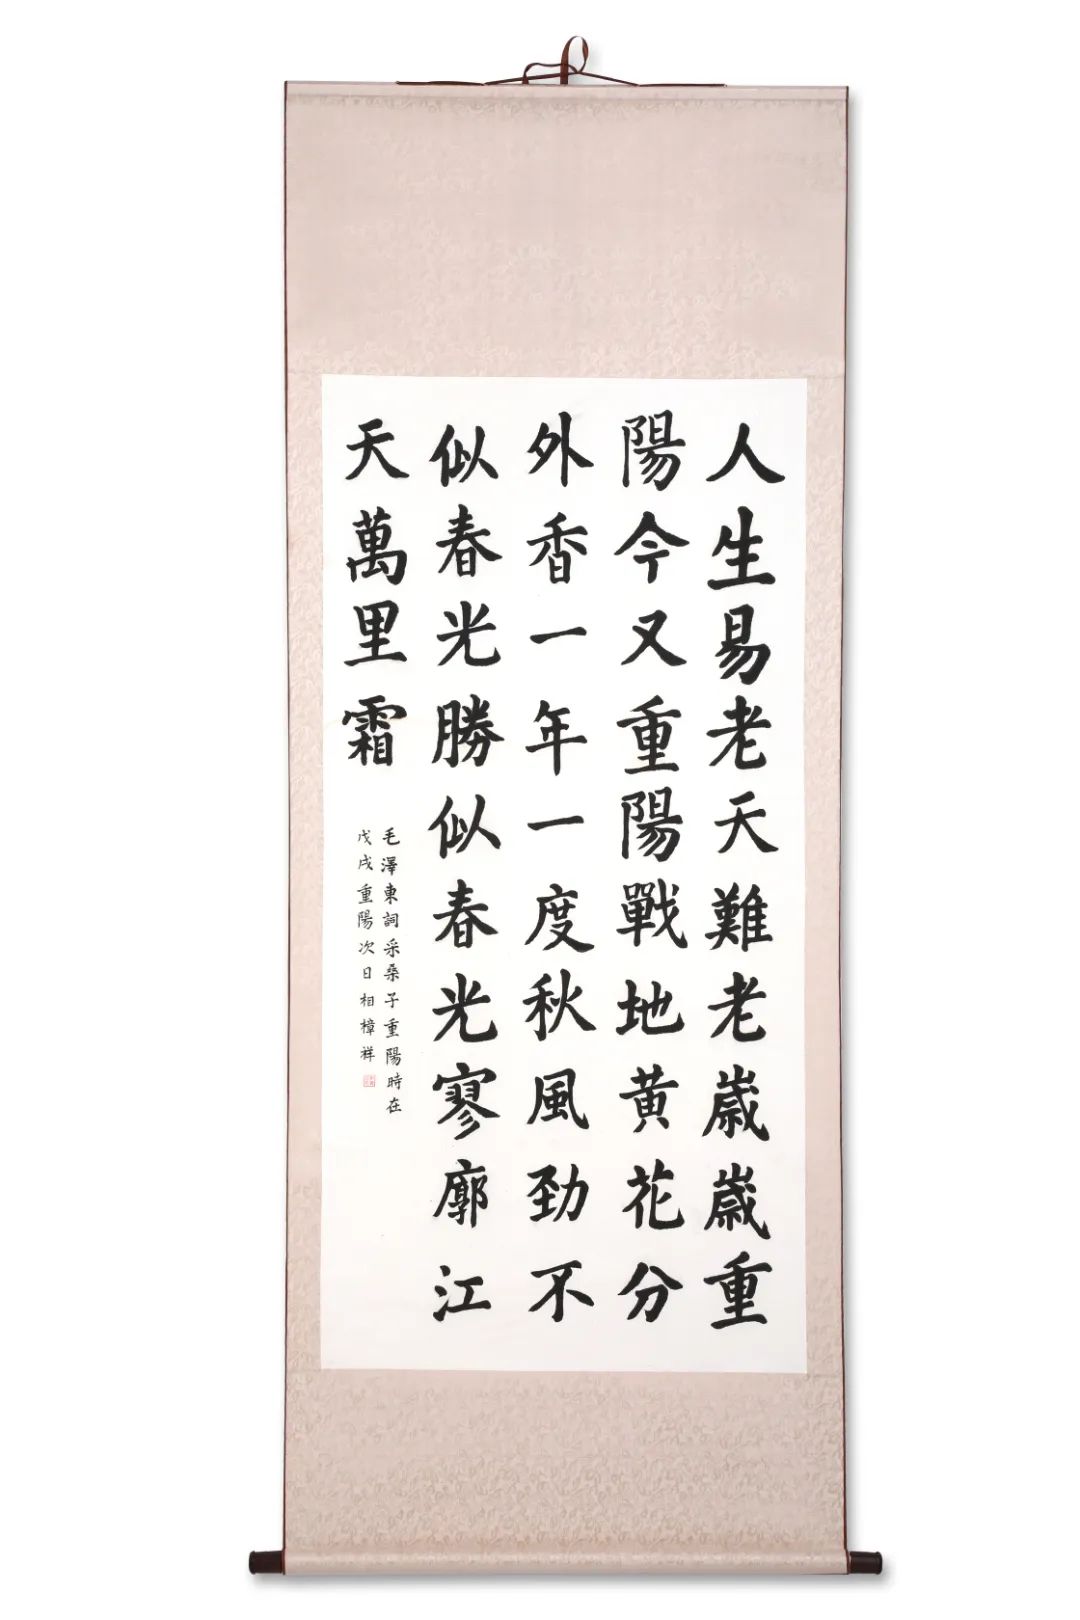 人生易老天難老歲歲重
陽今又重陽戰地黄花分
外香一年一度秋風勁不
似春光勝似春光寥廓江
天萬里霜
毛澤東詞采桑子重陽時在
戊戌重陽次日相樟祥